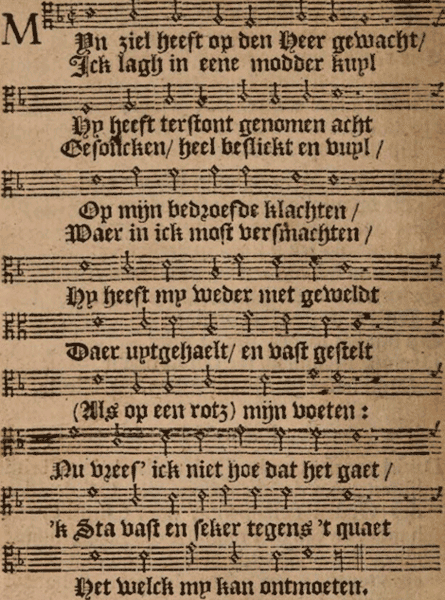 MYn ziel heeft op den Heer gewacht/
Ick lagh in eene modder kuyl
Hy heeft terstont genomen acht
Gesoncken/ heel beslickt en vuyl /
Op mijn bedroefde klachten /
Waer in ick most versmachten /
Hy heeft my weder met geweldt
Daer uytgehaelt/ en vast gestelt
(Als op een rotz) mijn voeten :
Nu vrees' ick niet hoe dat het gaet /
'k Sta vast en seker tegens 't quaet
Het welck my kan ontmoeten.